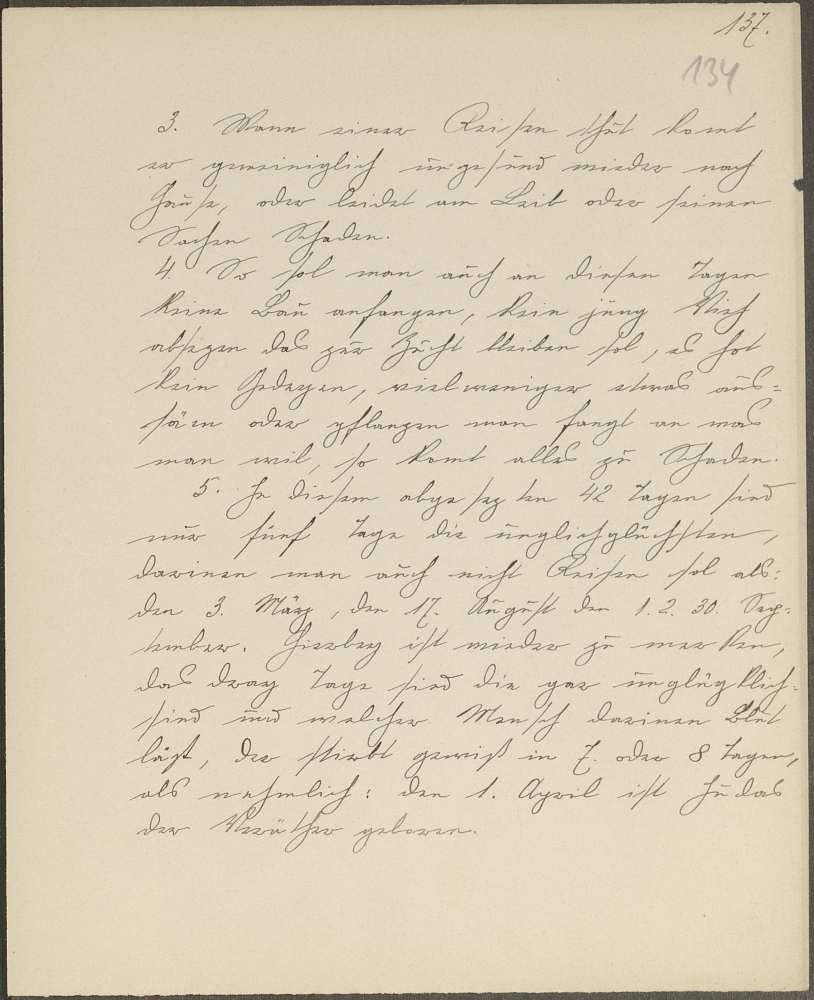 137.
134
3. Wann einer Reisen thut komt
er gemeiniglich ungesund wieder nach
Hause, oder leidet am Leib oder seinen
Sachen Schaden.
4. So sol man auch an diesen Tagen
keine Bau anfangen, kein jung Vieh
absezen das zur Zucht bleiben sol, es hat
kein Gedeyen, vielweniger etwas aus=
säen oder pflanzen man fangt an was
man wil, so komt alles zu Schaden.
5. In diesem abgesezten 42 Tagen sind
nur fünf Tage die unglichglüchsten,
darinen man auch nicht Reisen sol als:
den 3. März, den 17. August den 1. 2. 30. Sep=
tember. Hierbey ist wieder zu merken,
das drey Tage sind die gar unglügklich=
sind und welcher Mensch darinen Blut
läst, der stirbt gewiß in 7. oder 8 Tagen,
als nehmlich: den 1. April ist Judas
der Veräther geboren.